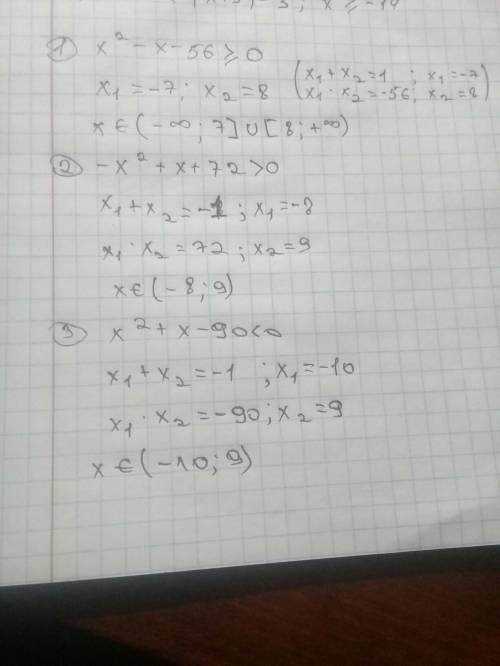 ① x² - x - 56 ≥ 0
x₁ = -7; x₂ = 8 (x₁ + x₂ = 1 ; x₁ = -7
x₁ · x₂ = -56; x₂ = 8)
x ∈ (-∞; 7] ∪ [8; +∞)
② -x² + x + 72 > 0
x₁ + x₂ = -1 ; x₁ = -8
x₁ · x₂ = 72 ; x₂ = 9
x ∈ (-8; 9)
③ x² + x - 90 < 0
x₁ + x₂ = -1 ; x₁ = -10
x₁ · x₂ = -90; x₂ = 9
x ∈ (-10; 9)